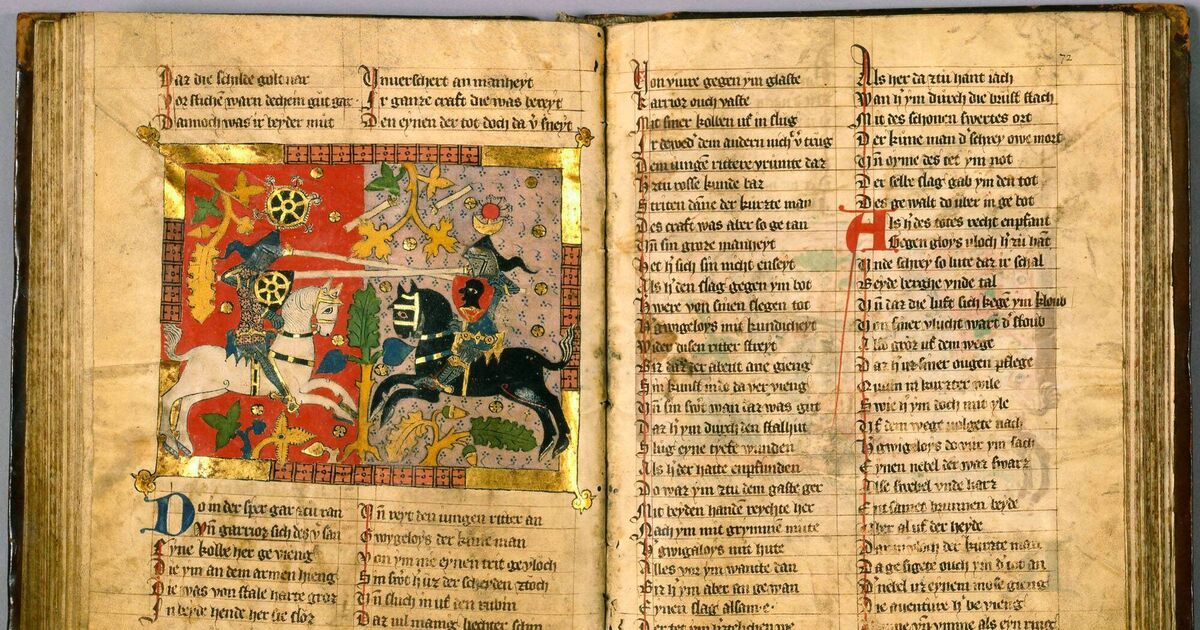 Dar die schilde golt nar
Vorstichē warn dechein gut gar
Dannoch was ir beyder mut
Vnuerschert an manheyt
Ir ganze craft die was bereyt
Den eynen der tot doch da v̄sneyt
Do in der sper gar zu ran
Vn̄ garrior sich des v̄san
Eyne kolbe her ge vieng
Die ym an dem armen hieng
Die was von stale harte groz
In beyde hende her sie sloz
Vn̄ reyt den iungen ritter an
Gwygeloys der kūne man
Von ym me eynen trit geyloch
Sin swert h' uz der scheyden ztoch
Vn̄ sluch in uf den rubin
Dar uil manig liechter schin
Von viure gegen ym glaste
Karrior ouch vaste
Mit siner kolben uf in slug
Ir dewed' dem andern nicht v̄trug
Dem iungē rittere yrumte daz
H' ztu rosse kunde baz
Striten dāne der kurzte man
Des craft was aber so ge tan
Vn̄ sin groze manheyt
Het h' sich sin nicht enseyt
Als h' den slag gegen ym bot
H' were von sinen slegen tot
H' gwigeloys mit kundicheyt
Wider disen ritter streyt
Biz daz der atent ane gieng
Sin kunst in le da ver vieng
Vn̄ sin swert wan daz was gut
Daz h' ym durch den stalhut
Slug eyne tyefe wunden
Als h' der hatte enpfunden
Do was ym ztu dem gaste ger
Mit beyden handē reychte her
Nach ym mit grymmem mute
H' gwigaloys mit hute
Alles vor ym wancte dan
Biz h' ym aber an gewan
Eynen slag alsam e
Als her da ztu hant iach
Wan h' ym durch die brust stach
Mit des schonen swertes ort
Der kūne man d' schrey owe mort
Vn̄ oyme des tet ym not
Der selbe slag gab ym den tot
Des ge walt do uber in ge bot
Als h' des totes recht enpfant
Gegen gloys vloch h' zu hāt
Vnde schrey so lute daz ir schal
Beyde berghe vnde tal
Vn̄ daz die luft sich kegē ym kloub
Von siner vlucht wart d' stoub
Also groz uf dem wege
Daz h' uz siner ougen pflege
Quam in kurzter wile
Swie h' ym doch mit yle
Uf dem wege volgete nach
H' gwigeloys do vor ym sach
Eynen nebel der was swarz
Alse swebel vnde harz
Ent samet brunnen beyde
Uber al uf der heyde
Dar in vloch der kurzte man
Da ge sigete ouch ym d' tot an
D' nebel uz eynem mose gieng
Die auenture h' be vieng
72